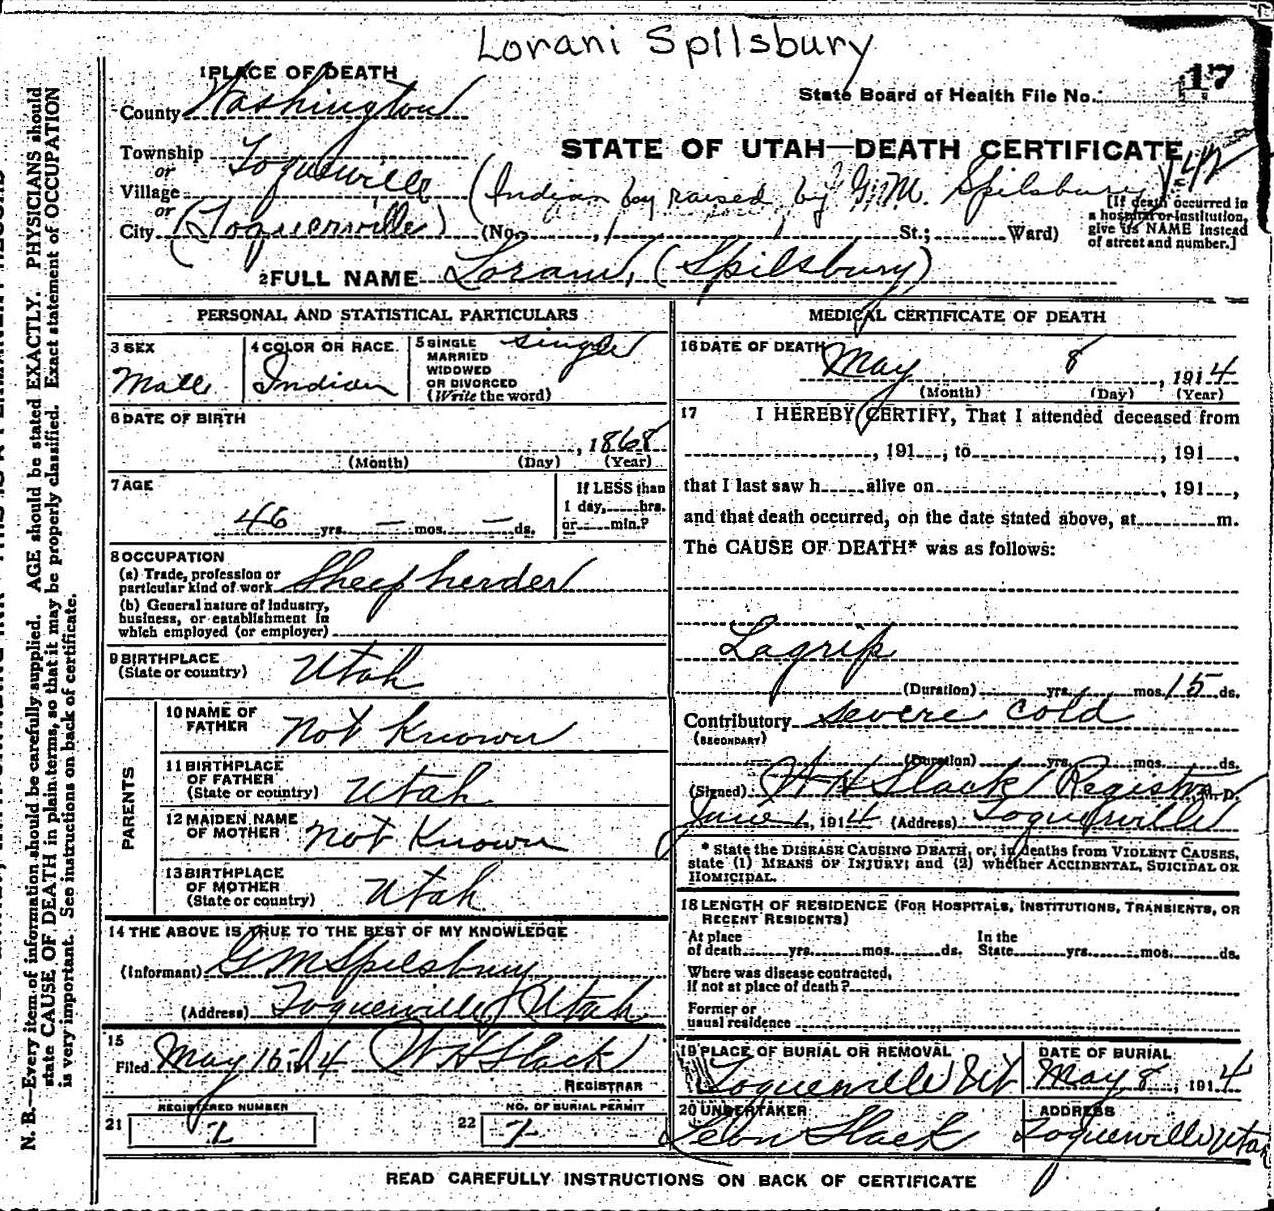 Lorani Spilsbury
1 PLACE OF DEATH
17
State Board of Health File No.
County Washington
STATE OF UTAH—DEATH CERTIFICATE
Township
or
Village Toquerville
(Indian boy raised by G.M. Spilsbury)
or
City (Toquerville) (No. St.; Ward)
[If death occurred in
a hospital or institution,
give its NAME instead
of street and number.]
2 FULL NAME Lorani, (Spilsbury)
PERSONAL AND STATISTICAL PARTICULARS
3 SEX
Male
4 COLOR OR RACE
Indian
5 SINGLE
MARRIED
WIDOWED
OR DIVORCED
(Write the word)
single
6 DATE OF BIRTH
, 1868
(Month) (Day) (Year)
7 AGE
46 yrs. — mos. — ds.
If LESS than
1 day, hrs.
or min.?
8 OCCUPATION
(a) Trade, profession or
particular kind of work Sheep herder
(b) General nature of industry,
business, or establishment in
which employed (or employer)
9 BIRTHPLACE
(State or country) Utah
PARENTS
10 NAME OF
FATHER not Known
11 BIRTHPLACE
OF FATHER
(State or country) Utah
12 MAIDEN NAME
OF MOTHER not Known
13 BIRTHPLACE
OF MOTHER
(State or country) Utah
14 THE ABOVE IS TRUE TO THE BEST OF MY KNOWLEDGE
(Informant) G M Spilsbury
(Address) Toquerville Utah
15
Filed May 15 1914 W H Slack
REGISTRAR
REGISTERED NUMBER
21
NO. OF BURIAL PERMIT
22
MEDICAL CERTIFICATE OF DEATH
16 DATE OF DEATH
May 8, 1914
(Month) (Day) (Year)
17 I HEREBY CERTIFY, That I attended deceased from
, 191 , to , 191 ,
that I last saw h alive on , 191 ,
and that death occurred, on the date stated above, at m.
The CAUSE OF DEATH* was as follows:
Lagrip
(Duration) yrs. mos. 15 ds.
Contributory severe cold
(SECONDARY)
(Duration) yrs. mos. ds.
(Signed) W H Slack Registrar M. D.
June 1, 1914 (Address) Toquerville
* State the DISEASE CAUSING DEATH, or, in deaths from VIOLENT CAUSES,
state (1) MEANS OF INJURY; and (2) whether ACCIDENTAL, SUICIDAL OR
HOMICIDAL.
18 LENGTH OF RESIDENCE (FOR HOSPITALS, INSTITUTIONS, TRANSIENTS, OR
RECENT RESIDENTS)
At place
of death yrs. mos. ds.
In the
State yrs. mos. ds.
Where was disease contracted,
if not at place of death?
Former or
usual residence
19 PLACE OF BURIAL OR REMOVAL
Toquerville Ut
DATE OF BURIAL
May 8, 1914
20 UNDERTAKER
Slack
ADDRESS
Toquerville Utah
READ CAREFULLY INSTRUCTIONS ON BACK OF CERTIFICATE
N. B.—Every item of information should be carefully supplied. AGE should be stated EXACTLY. PHYSICIANS should
state CAUSE OF DEATH in plain terms, so that it may be properly classified. Exact statement of OCCUPATION
is very important. See instructions on back of certificate.